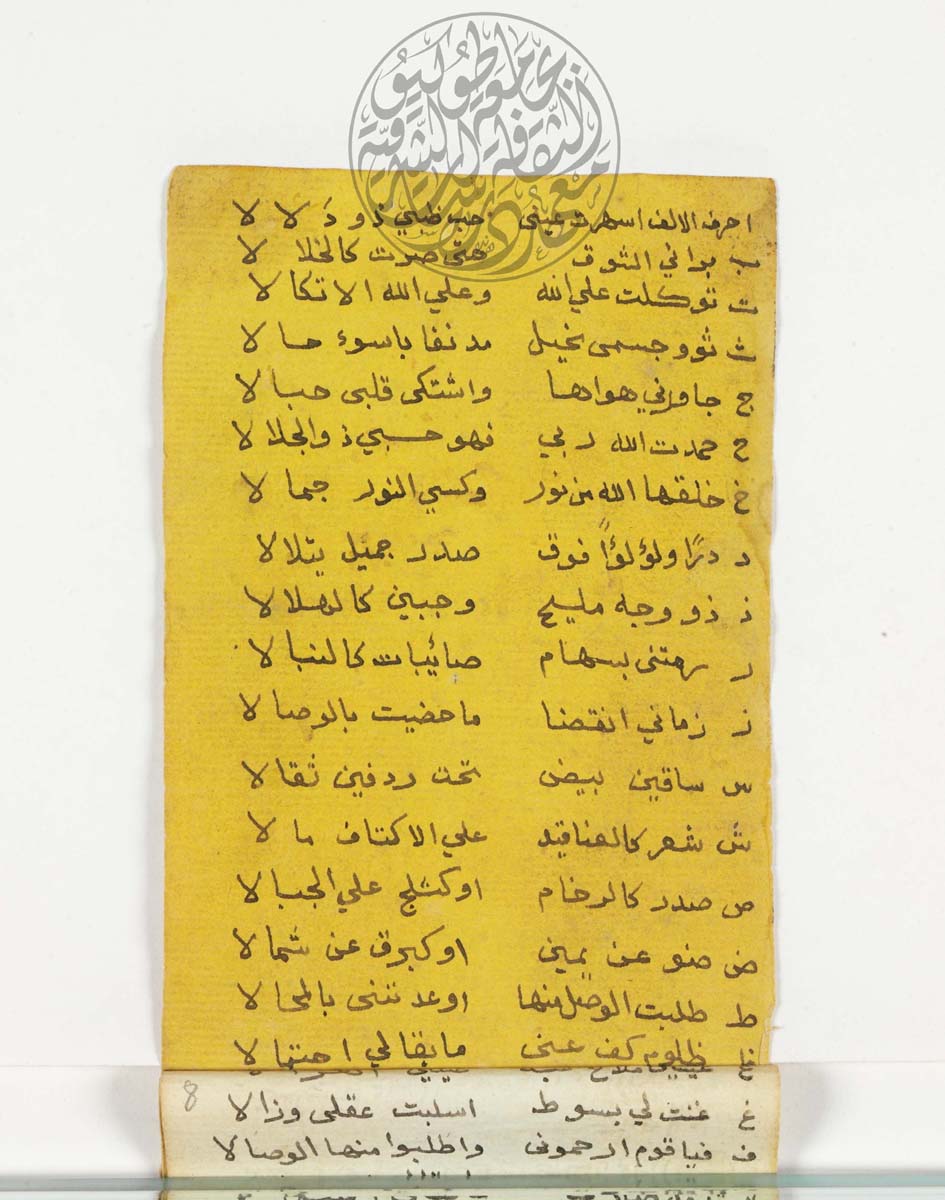 ا حرف الالف اسهرت عيني حب ظبي ذو دَلا لا
ب براني الشوق حتى صرت كالخلا لا
ت توكلت علي الله وعلي الله الاتكا لا
ث ثوو جسمى نحيل مدنفا باسوء حا لا
ج جاورني هواها واشتكى قلبى حبا لا
ح حمدت الله ربي فهو حسبي ذ والجلا لا
خ خلقها الله من نور وكسي النور جما لا
د درًا ولؤلؤاً فوق صدر جميل يتلا لا
ذ ذو وجه مليح وجبين كالهلا لا
ر رمتنى بسهام صائيبات كالنبا لا
ز زماني انقضا ما حضيت بالوصا لا
س ساقين بيض تحت ردفين ثقا لا
ش شعر كالعناقيد علي الاكتاف ما لا
ص صدر كالرخام اوكثلج علي الجبا لا
ض ضو عن يمين اوكبرق عن شما لا
ط طلبت الوصل منها اوعدتنى بالمحا لا
ظ ظلوم كف عنى مابقالي احتما لا
8
غ غنت لي بسوط اسلبت عقلى وزا لا
ف فيا قوم ارحمونى واطلبوا منها الوصا لا